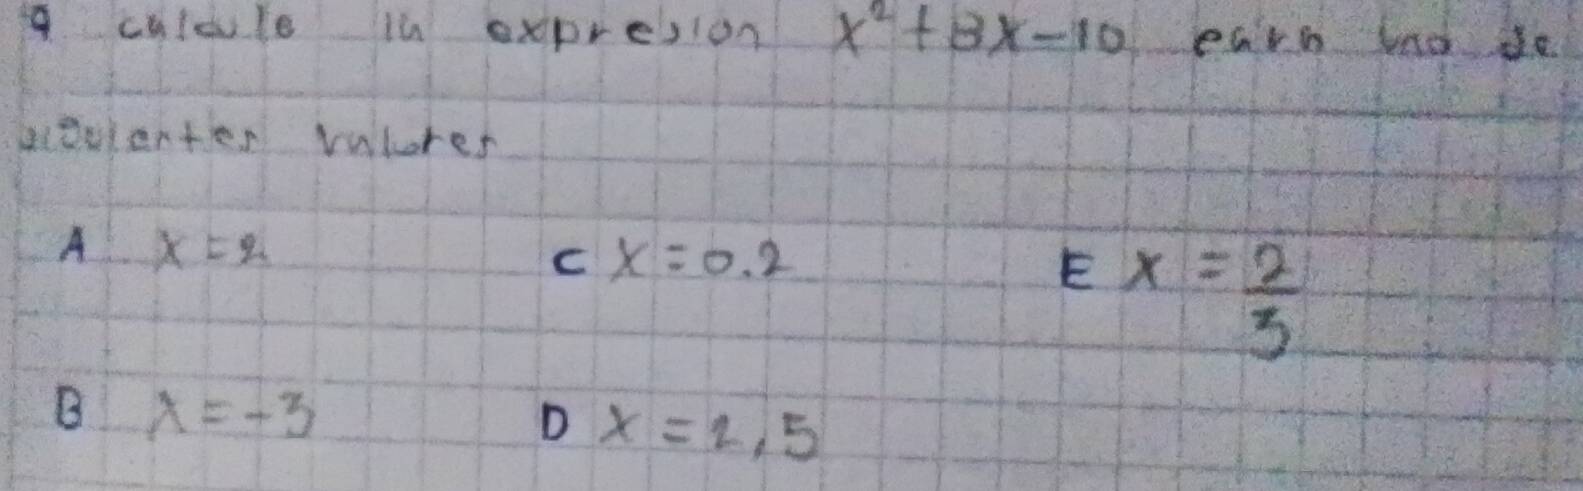 9 calcule la expresion x² + 3x - 10 para uno de
siguientes valores
A x = 2 C x = 0.2 E x = 2/3
B x = -3 D x = 2,5